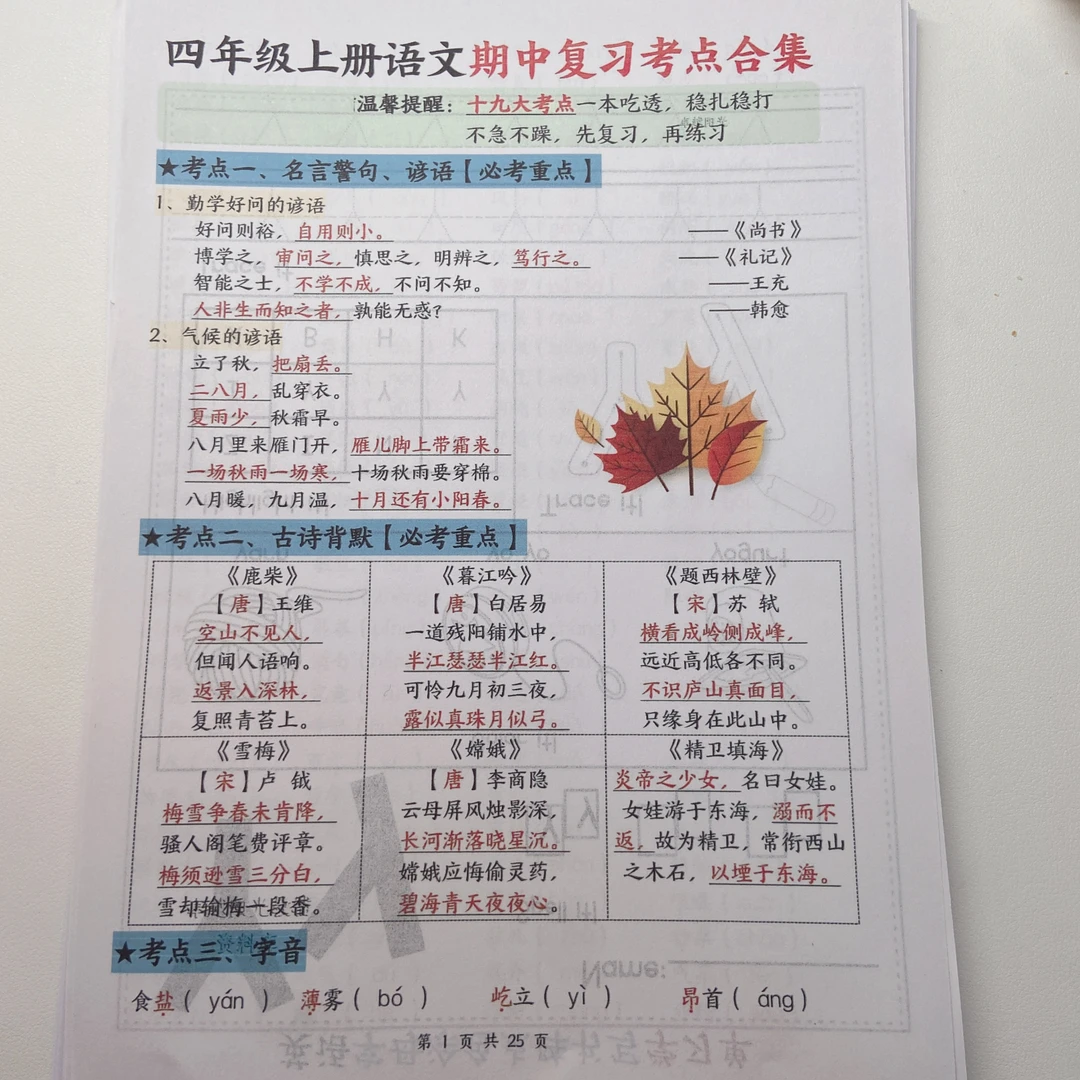 四年级上册语文期中复习考点合集
温馨提醒：十九大考点一本吃透，稳扎稳打
不急不躁，先复习，再练习
★考点一、名言警句、谚语【必考重点】
1、勤学好问的谚语
好问则裕，自用则小。 ——《尚书》
博学之，审问之，慎思之，明辨之，笃行之。 ——《礼记》
智能之士，不学不成，不问不知。 ——王充
人非生而知之者，孰能无惑？ ——韩愈
2、气候的谚语
立了秋，把扇丢。
二八月，乱穿衣。
夏雨少，秋霜早。
八月里来雁门开，雁儿脚上带霜来。
一场秋雨一场寒，十场秋雨要穿棉。
八月暖，九月温，十月还有小阳春。
★考点二、古诗背默【必考重点】
《鹿柴》
【唐】王维
空山不见人，
但闻人语响。
返景入深林，
复照青苔上。
《暮江吟》
【唐】白居易
一道残阳铺水中，
半江瑟瑟半江红。
可怜九月初三夜，
露似真珠月似弓。
《题西林壁》
【宋】苏 轼
横看成岭侧成峰，
远近高低各不同。
不识庐山真面目，
只缘身在此山中。
《雪梅》
【宋】卢 钺
梅雪争春未肯降，
骚人阁笔费评章。
梅须逊雪三分白，
雪却输梅一段香。
《嫦娥》
【唐】李商隐
云母屏风烛影深，
长河渐落晓星沉。
嫦娥应悔偷灵药，
碧海青天夜夜心。
《精卫填海》
炎帝之少女，名曰女娃。
女娃游于东海，溺而不
返，故为精卫，常衔西山
之木石，以堙于东海。
★考点三、字音
食盐（ yán ） 薄雾（ bó ） 屹立（ yì ） 昂首（ áng ）
第 1 页 共 25 页